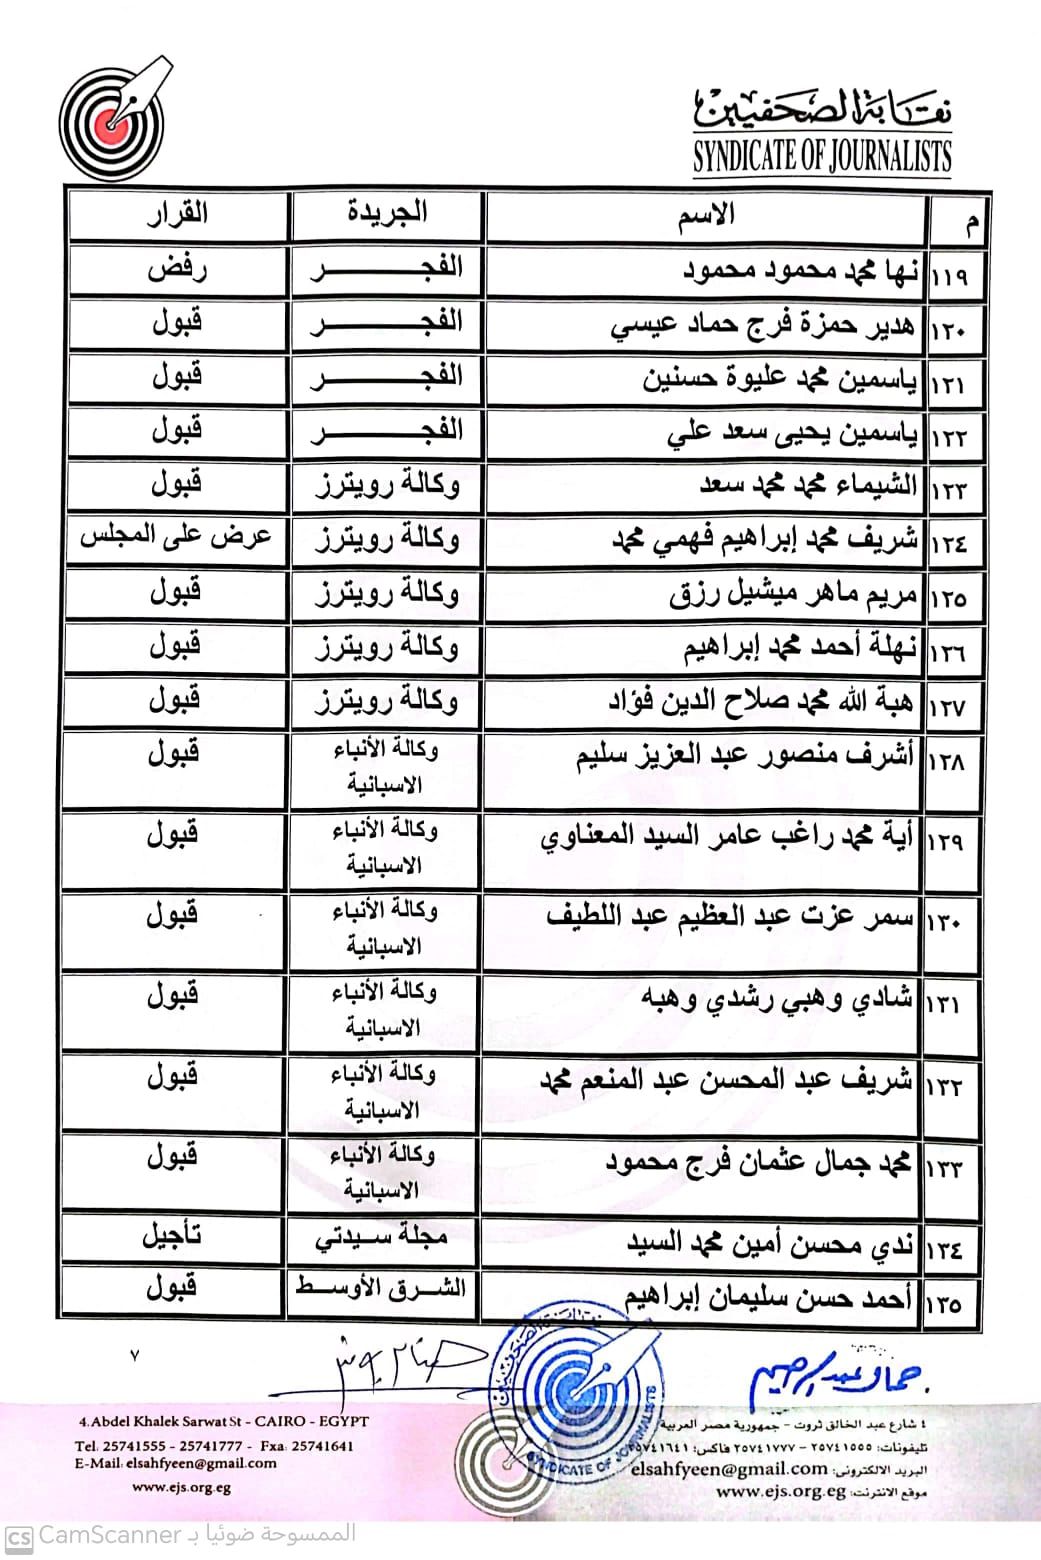 نقابة الصحفيين
SYNDICATE OF JOURNALISTS
م الاسم الجريدة القرار
١١٩ نها محمد محمود محمود الفجـــــــر رفض
١٢٠ هدير حمزة فرج حماد عيسي الفجـــــــر قبول
١٢١ ياسمين محمد عليوة حسنين الفجـــــــر قبول
١٢٢ ياسمين يحيى سعد علي الفجـــــــر قبول
١٢٣ الشيماء محمد محمد سعد وكالة رويترز قبول
١٢٤ شريف محمد إبراهيم فهمي محمد وكالة رويترز عرض على المجلس
١٢٥ مريم ماهر ميشيل رزق وكالة رويترز قبول
١٢٦ نهلة أحمد محمد إبراهيم وكالة رويترز قبول
١٢٧ هبة الله محمد صلاح الدين فؤاد وكالة رويترز قبول
١٢٨ أشرف منصور عبد العزيز سليم وكالة الأنباء قبول
الاسبانية
١٢٩ أية محمد راغب عامر السيد المعناوي وكالة الأنباء قبول
الاسبانية
١٣٠ سمر عزت عبد العظيم عبد اللطيف وكالة الأنباء قبول
الاسبانية
١٣١ شادي وهبي رشدي وهبه وكالة الأنباء قبول
الاسبانية
١٣٢ شريف عبد المحسن عبد المنعم محمد وكالة الأنباء قبول
الاسبانية
١٣٣ محمد جمال عثمان فرج محمود وكالة الأنباء قبول
الاسبانية
١٣٤ ندي محسن أمين محمد السيد مجلة سيدتي تأجيل
١٣٥ أحمد حسن سليمان إبراهيم الشرق الأوسط قبول
٧
نقابة الصحفيين
SYNDICATE OF JOURNALISTS
جمال عبد الرحيم
٤ شارع عبد الخالق ثروت - جمهورية مصر العربية
تليفونات: ٢٥٧٤١٥٥٥ - ٢٥٧٤١٧٧٧ فاكس: ٢٥٧٤١٦٤١
البريد الالكترونى: elsahfyeen@gmail.com
موقع الانترنت: www.ejs.org.eg
4.Abdel Khalek Sarwat St - CAIRO - EGYPT
Tel: 25741555 - 25741777 - Fxa: 25741641
E-Mail: elsahfyeen@gmail.com
www.ejs.org.eg
CS CamScanner الممسوحة ضوئيا بـ